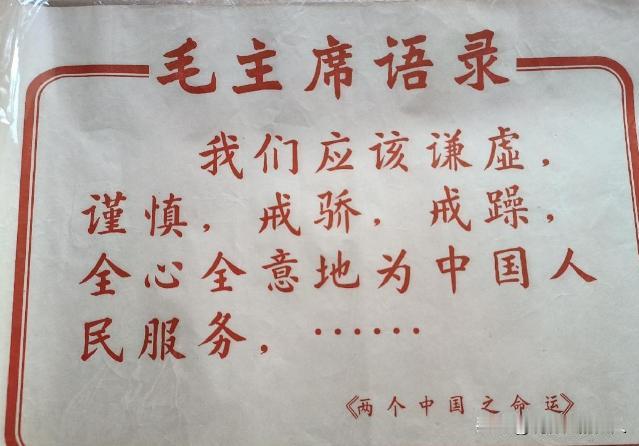 毛主席语录
我们应该谦虚，
谨慎，戒骄，戒躁，
全心全意地为中国人
民服务，……
《两个中国之命运》